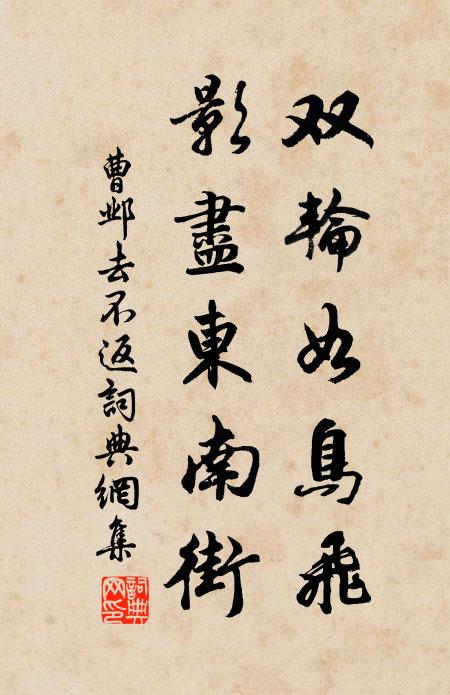 双輪如鳥飛
影盡東南街
曹邺去不返詞典網集
詞典網印